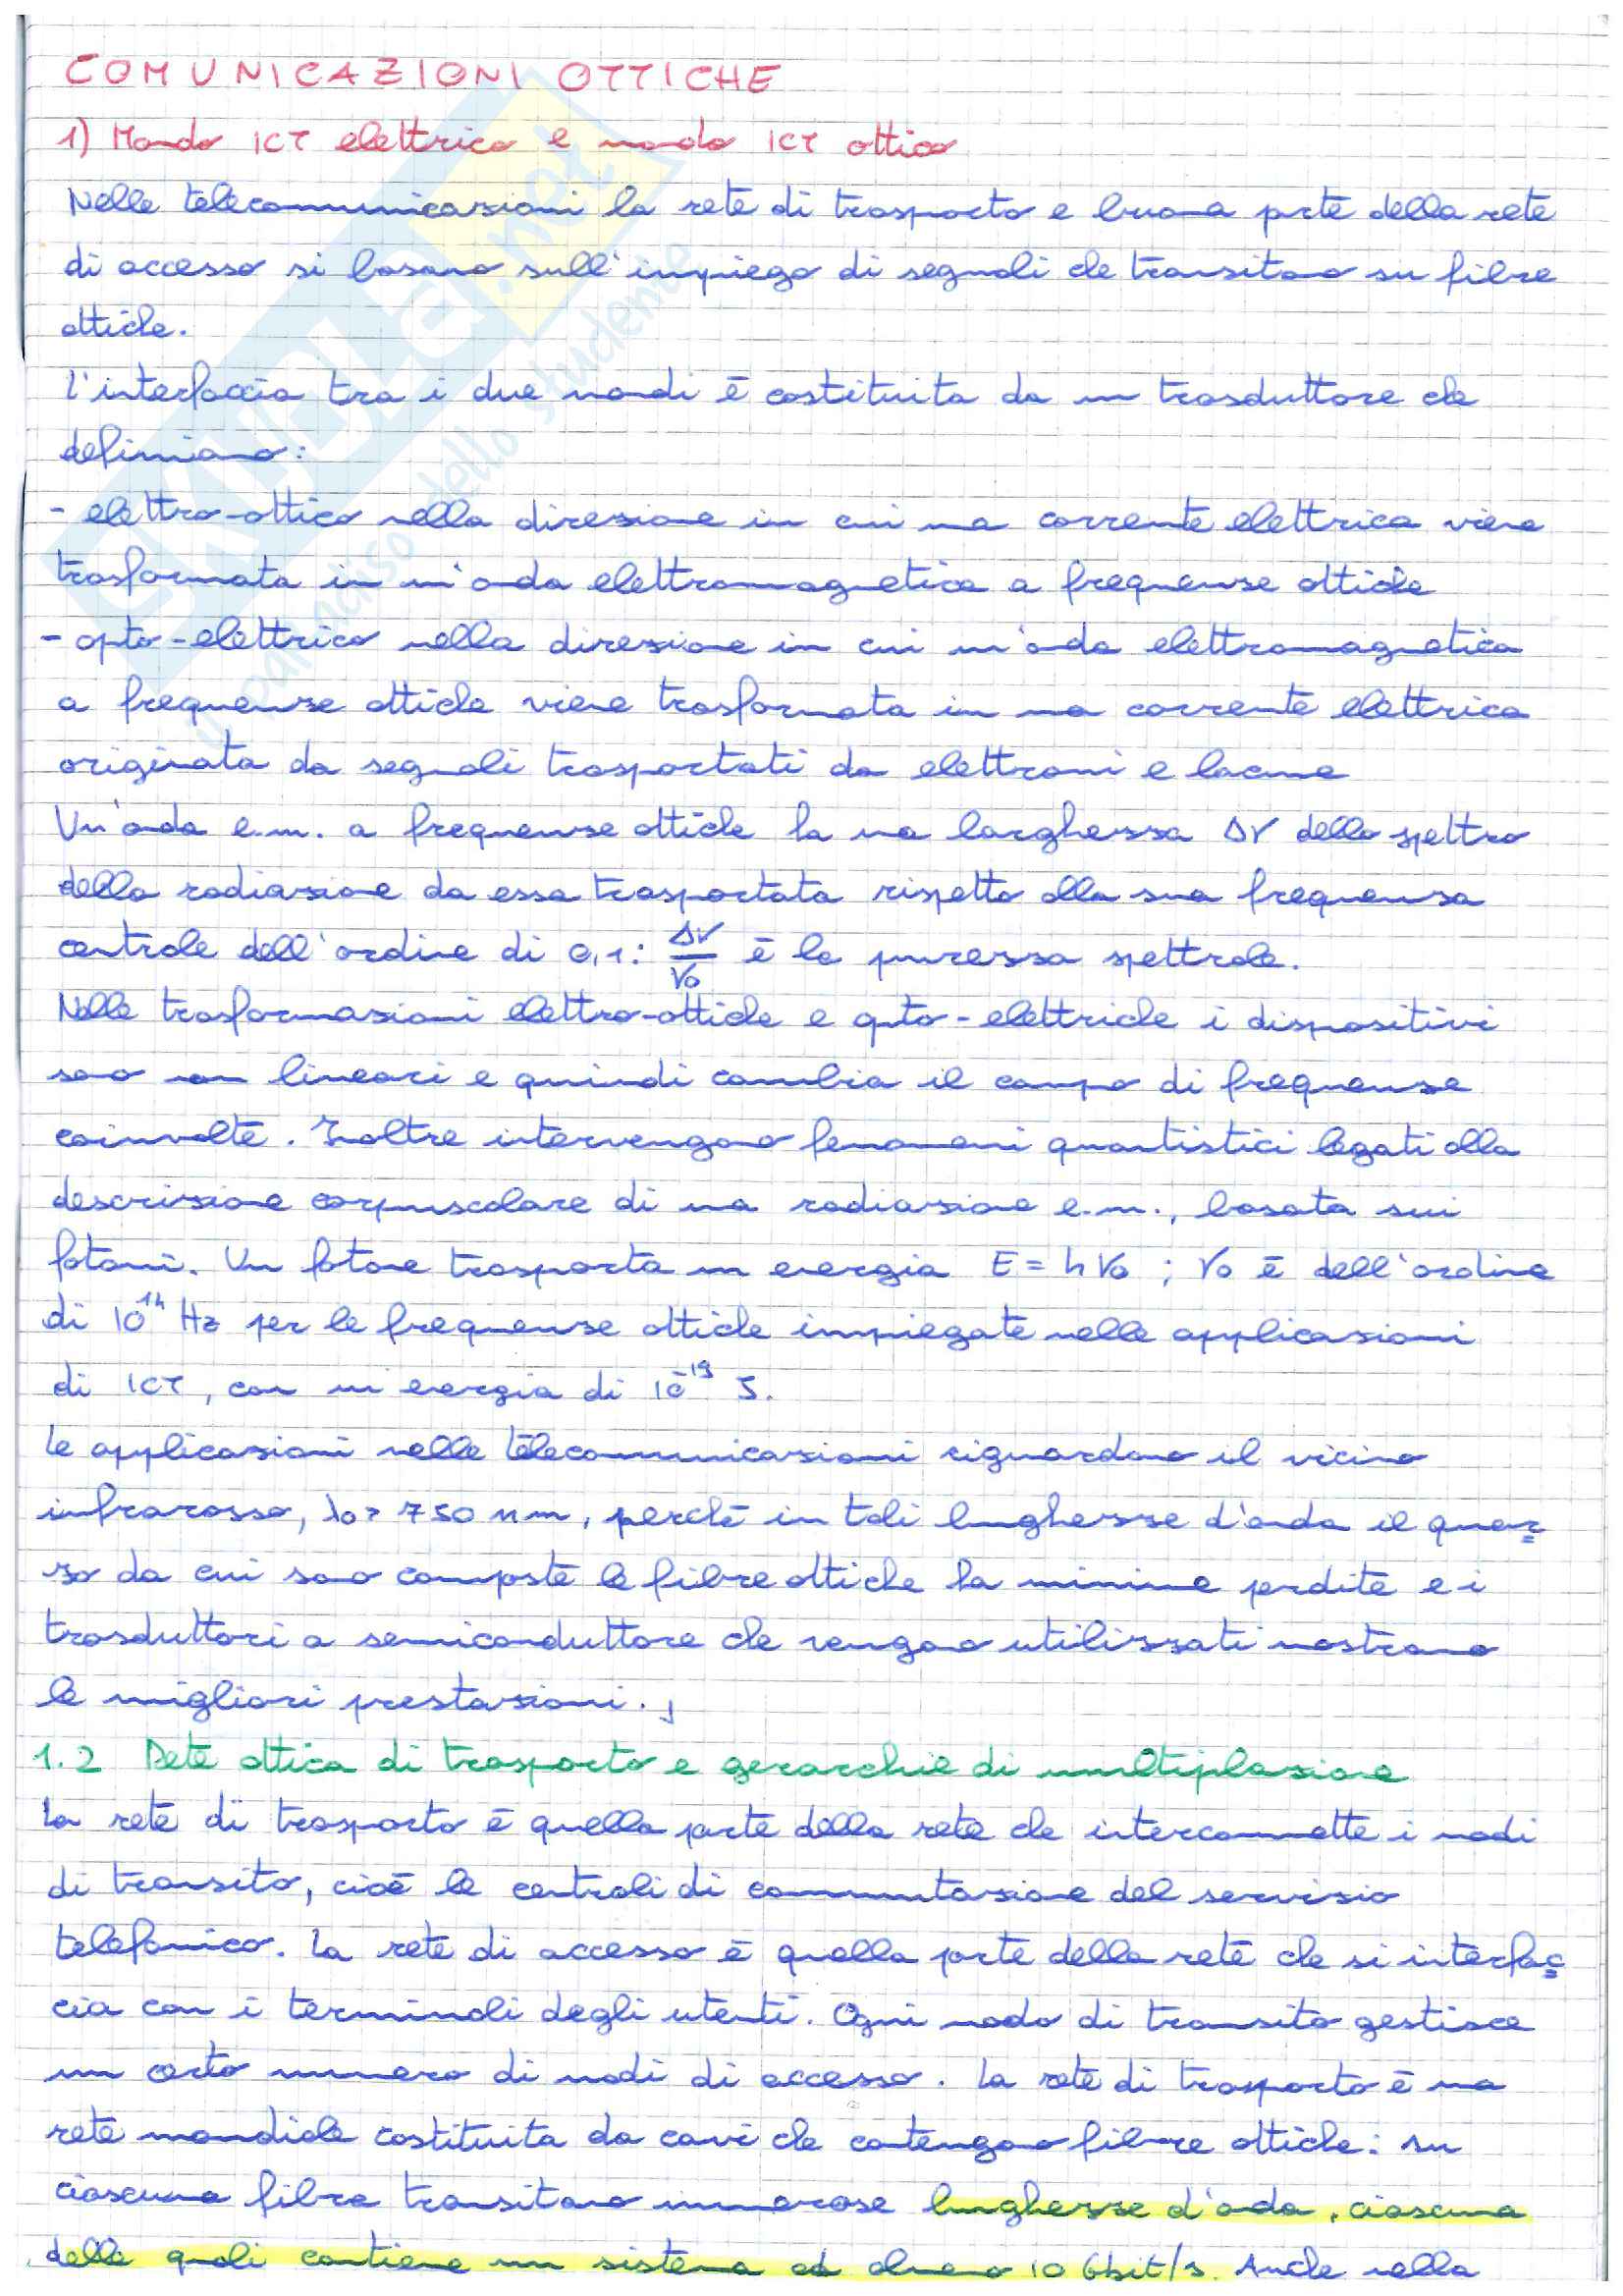 COMUNICAZIONI OTTICHE
1) Mondo ICT elettrico e mondo ICT ottico
Nelle telecomunicazioni la rete di trasporto e buona parte della rete
di accesso si basano sull'impiego di segnali che transitano su fibre
ottiche.
L'interfaccia tra i due mondi è costituita da un trasduttore che
definiamo:
- elettro-ottico nella direzione in cui una corrente elettrica viene
trasformata in un'onda elettromagnetica a frequenze ottiche
- opto-elettrico nella direzione in cui un'onda elettromagnetica
a frequenze ottiche viene trasformata in una corrente elettrica
originata da segnali trasportati da elettroni e lacune
Un'onda e.m. a frequenze ottiche ha una larghezza Δν dello spettro
della radiazione da essa trasportata rispetto alla sua frequenza
centrale dell'ordine di 0,1: Δν/ν0 è la purezza spettrale.
Nelle trasformazioni elettro-ottiche e opto-elettriche i dispositivi
sono non lineari e quindi cambia il campo di frequenze
coinvolte. Inoltre intervengono fenomeni quantistici legati alla
descrizione corpuscolare di una radiazione e.m., basata sui
fotoni. Un fotone trasporta un energia E = hν0 ; ν0 è dell'ordine
di 10^14 Hz per le frequenze ottiche impiegate nelle applicazioni
di ICT, con un'energia di 10^-19 J.
Le applicazioni nelle telecomunicazioni riguardano il vicino
infrarosso, λ0 > 750 nm, perché in tali lunghezze d'onda il quar=
zo da cui sono composte le fibre ottiche ha minime perdite e i
trasduttori a semiconduttore che vengono utilizzati mostrano
le migliori prestazioni.
1.2 Rete ottica di trasporto e gerarchie di multiplazione
La rete di trasporto è quella parte della rete che interconnette i nodi
di transito, cioè le centrali di commutazione del servizio
telefonico. La rete di accesso è quella parte della rete che si interfac=
cia con i terminali degli utenti. Ogni nodo di transito gestisce
un certo numero di nodi di accesso. La rete di trasporto è una
rete mondiale costituita da cavi che contengono fibre ottiche: su
ciascuna fibra transitano numerose lunghezze d'onda, ciascuna
delle quali contiene un sistema ad almeno 10 Gbit/s. Anche nella